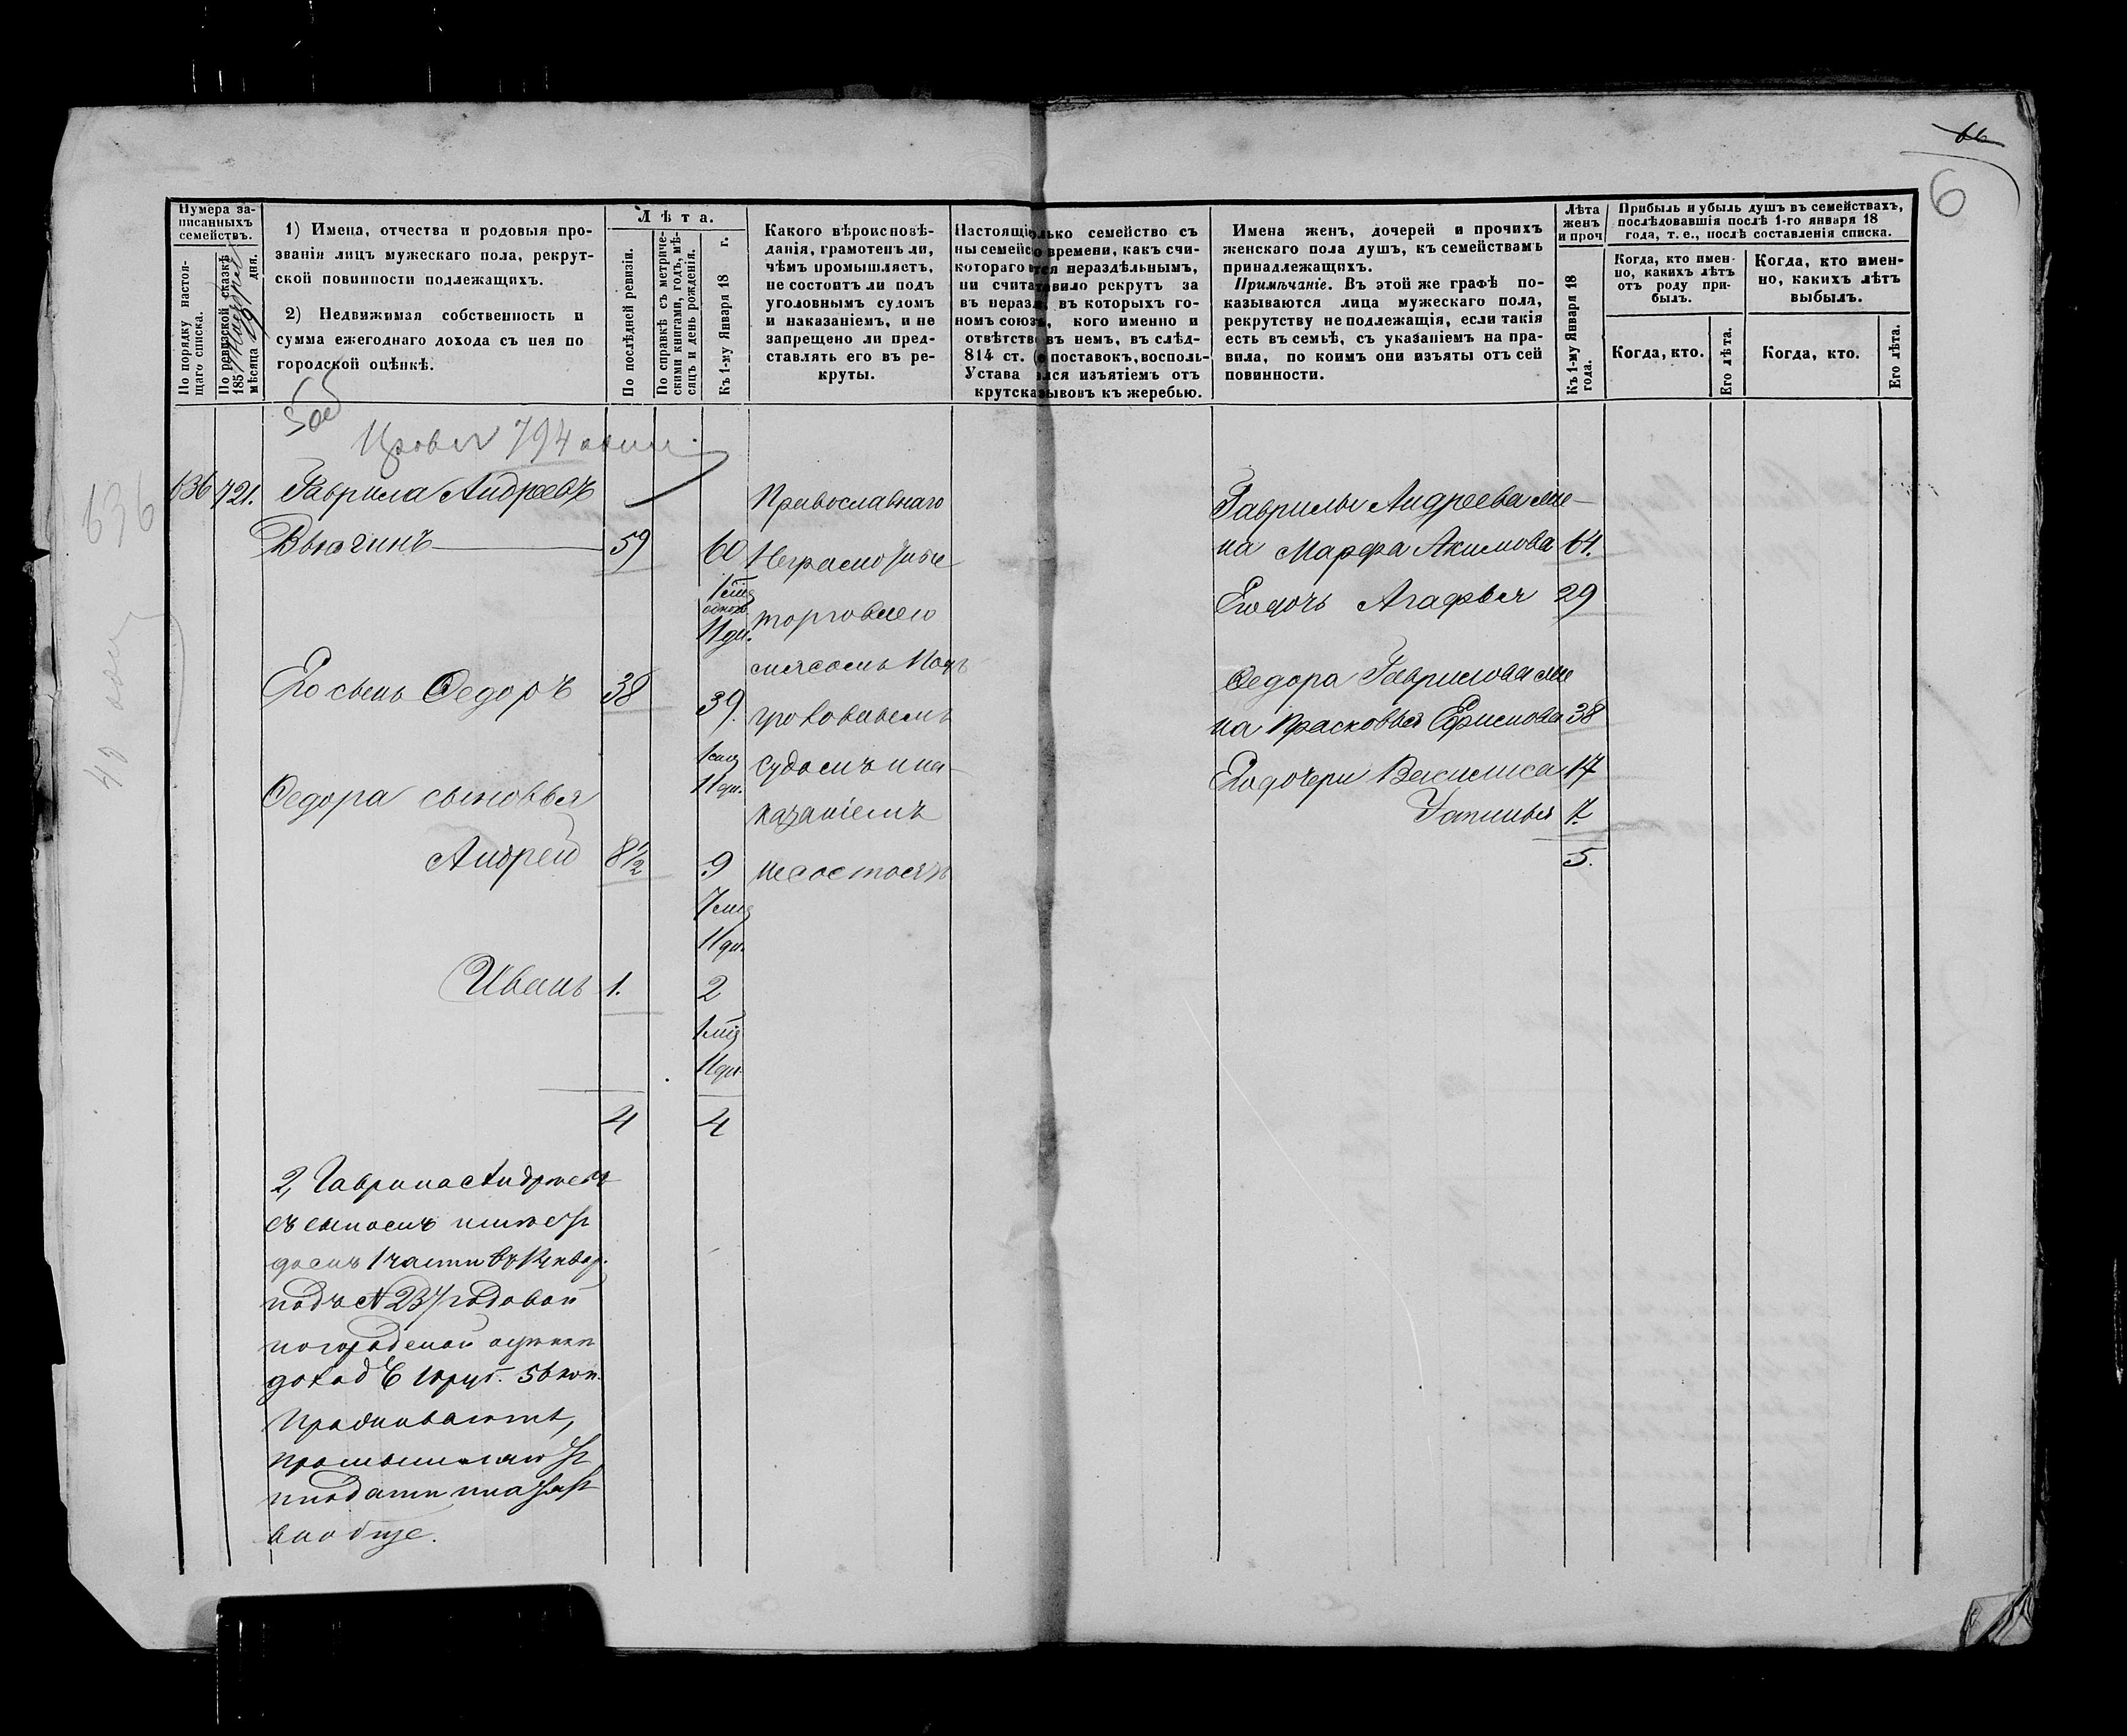 6
Нумера за-
писанныхъ
семействъ.
По порядку настоя-
щаго списка.
По ревизской сказкѣ
185
мѣсяца 19 дня.
1) Имена, отчества и родовыя про-
званія лицъ мужескаго пола, рекрут-
ской повинности подлежащихъ.
2) Недвижимая собственность и
сумма ежегоднаго дохода съ нея по
городской оцѣнкѣ.
Лѣта.
По послѣдней ревизіи.
По справкѣ съ метриче-
скими книгами, годъ, мѣ-
сяцъ и день рожденія.
Къ 1-му Января 18 г.
Какого вѣроисповѣ-
данія, грамотенъ ли,
чѣмъ промышляетъ,
не состоитъ ли подъ
уголовнымъ судомъ
и наказаніемъ, и не
запрещено ли пред-
ставлять его въ ре-
круты.
Настоящі олько семейство съ
ны семейс о времени, какъ счи-
котораго тся нераздѣльнымъ,
ни счита авило рекрутъ за
въ нераз въ которыхъ го-
номъ союз , кого именно и
отвѣтств въ немъ, въ слѣд-
814 ст. ( поставокъ, восполь-
Устава лся изъятіемъ отъ
крутска зывовъ къ жеребью.
Имена женъ, дочерей и прочихъ
женскаго пола душъ, къ семействамъ
принадлежащихъ.
Примѣчаніе. Въ этой же графѣ по-
казываются лица мужескаго пола,
рекрутству не подлежащія, если такія
есть въ семьѣ, съ указаніемъ на пра-
вила, по коимъ они изъяты отъ сей
повинности.
Лѣта
женъ
и проч
Къ 1-му Января 18
года.
Прибыль и убыль душъ въ семействахъ,
послѣдовавшія послѣ 1-го января 18
года, т. е., послѣ составленія списка.
Когда, кто имен-
но, какихъ лѣтъ
отъ роду при-
былъ.
Когда, кто имен-
но, какихъ лѣтъ
выбылъ.
Когда, кто.
Его лѣта.
Когда, кто.
Его лѣта.
794
636
636 721. Гаврила Андреевъ
Вьюгинъ 59 60
1 мѣс
11 дн.
Его сынъ Федоръ 38 39.
1 мѣс
11 дн.
Федора сыновья
Андрей 8½ 9
7 мѣс
11 дн.
Иванъ 1. 2
1 мѣс
11 дн.
4 4
Православнаго
Неграмотные
торговлею
мясомъ Подъ
уголовнымъ
судомъ и на-
казаніемъ
не состоятъ
Гаврилы Андреева же-
на Марфа Акимова 64.
Его дочь Агафья 29
Федора Гаврилова же
на Прасковья Ефимова 38
Его дочери Василиса 17
Татьяна 7.
5.
2, Гаврила Андреевъ
съ сыномъ имѣетъ
домъ 1 части въ квар.
подъ № 237 годовой
по городской оцѣнкѣ
доходъ 10 руб. 56 коп.
Проживаютъ,
промышляютъ
и подати платятъ
вообще.